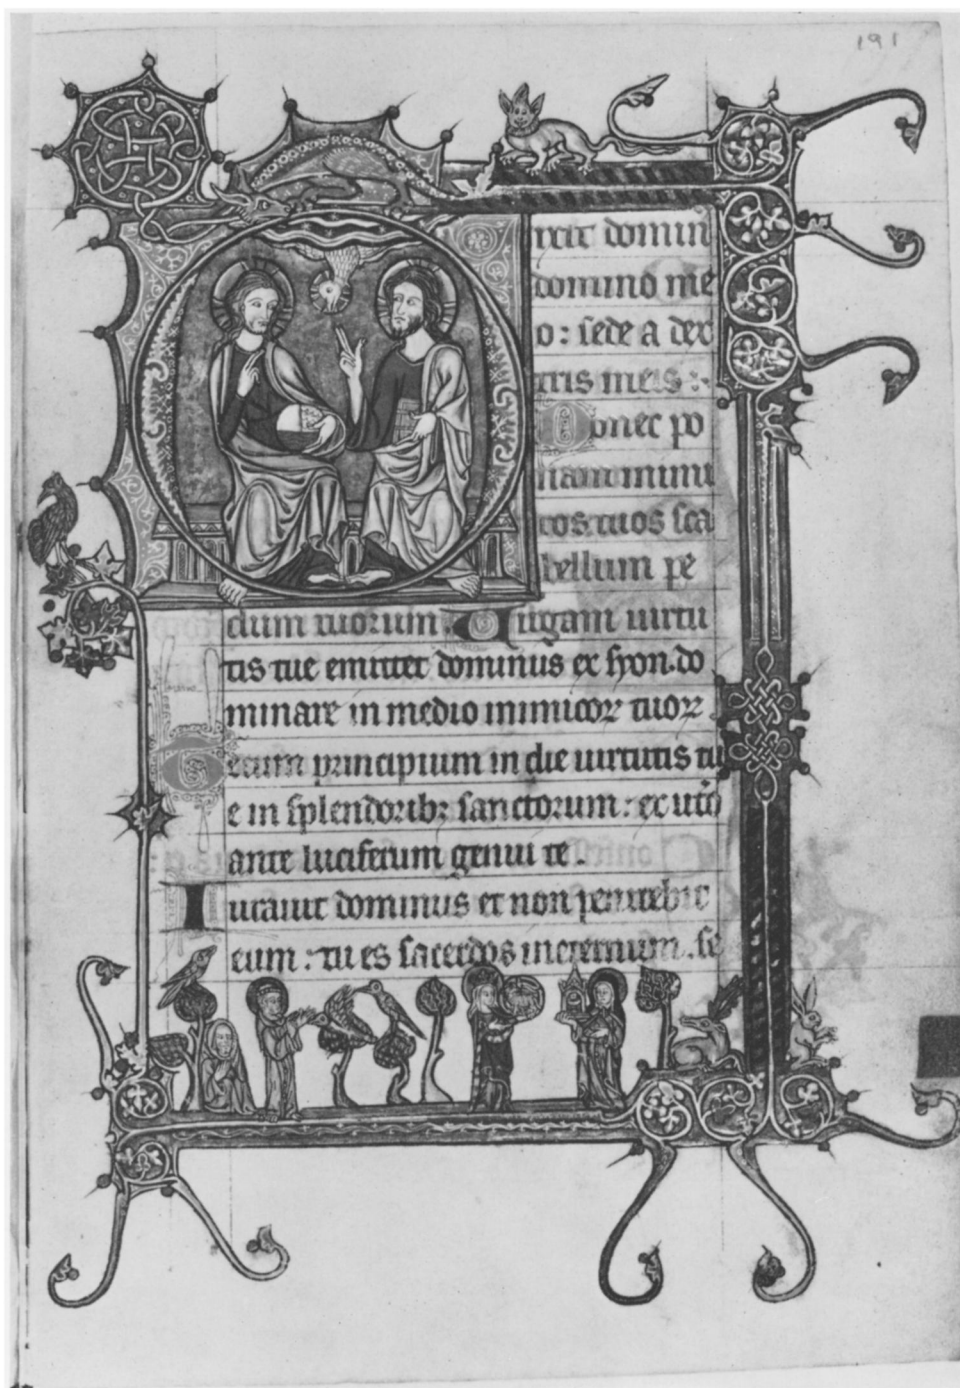 191
ixit domin
domino me
o : sede a dex
tris meis :
Donec po
nam inimi
cos tuos sca
bellum pe
dum tuorum Uirgam uirtu
tis tue emittet dominus ex syon . do
minare in medio inimicoꝝ tuoꝝ
Tecum principium in die uirtutis tu
e in splendoribꝫ sanctorum : ex utō
ante luciferum genui te .
Iurauit dominus et non penitebit
eum : tu es sacerdos in eternum . se